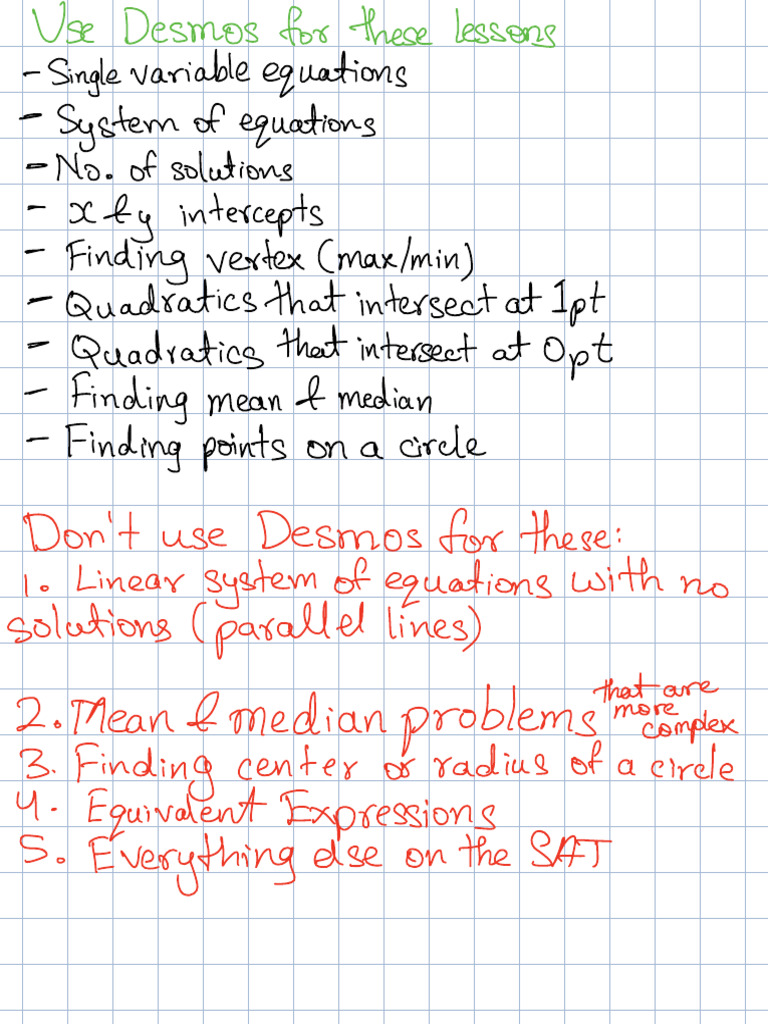 Use Desmos for these lessons
- Single variable equations
- System of equations
- No. of solutions
- x & y intercepts
- Finding vertex (max/min)
- Quadratics that intersect at 1pt
- Quadratics that intersect at 0pt
- Finding mean & median
- Finding points on a circle
Don't use Desmos for these:
1. Linear system of equations with no
solutions (parallel lines)
2. Mean & median problems that are
more
complex
3. Finding center or radius of a circle
4. Equivalent Expressions
5. Everything else on the SAT